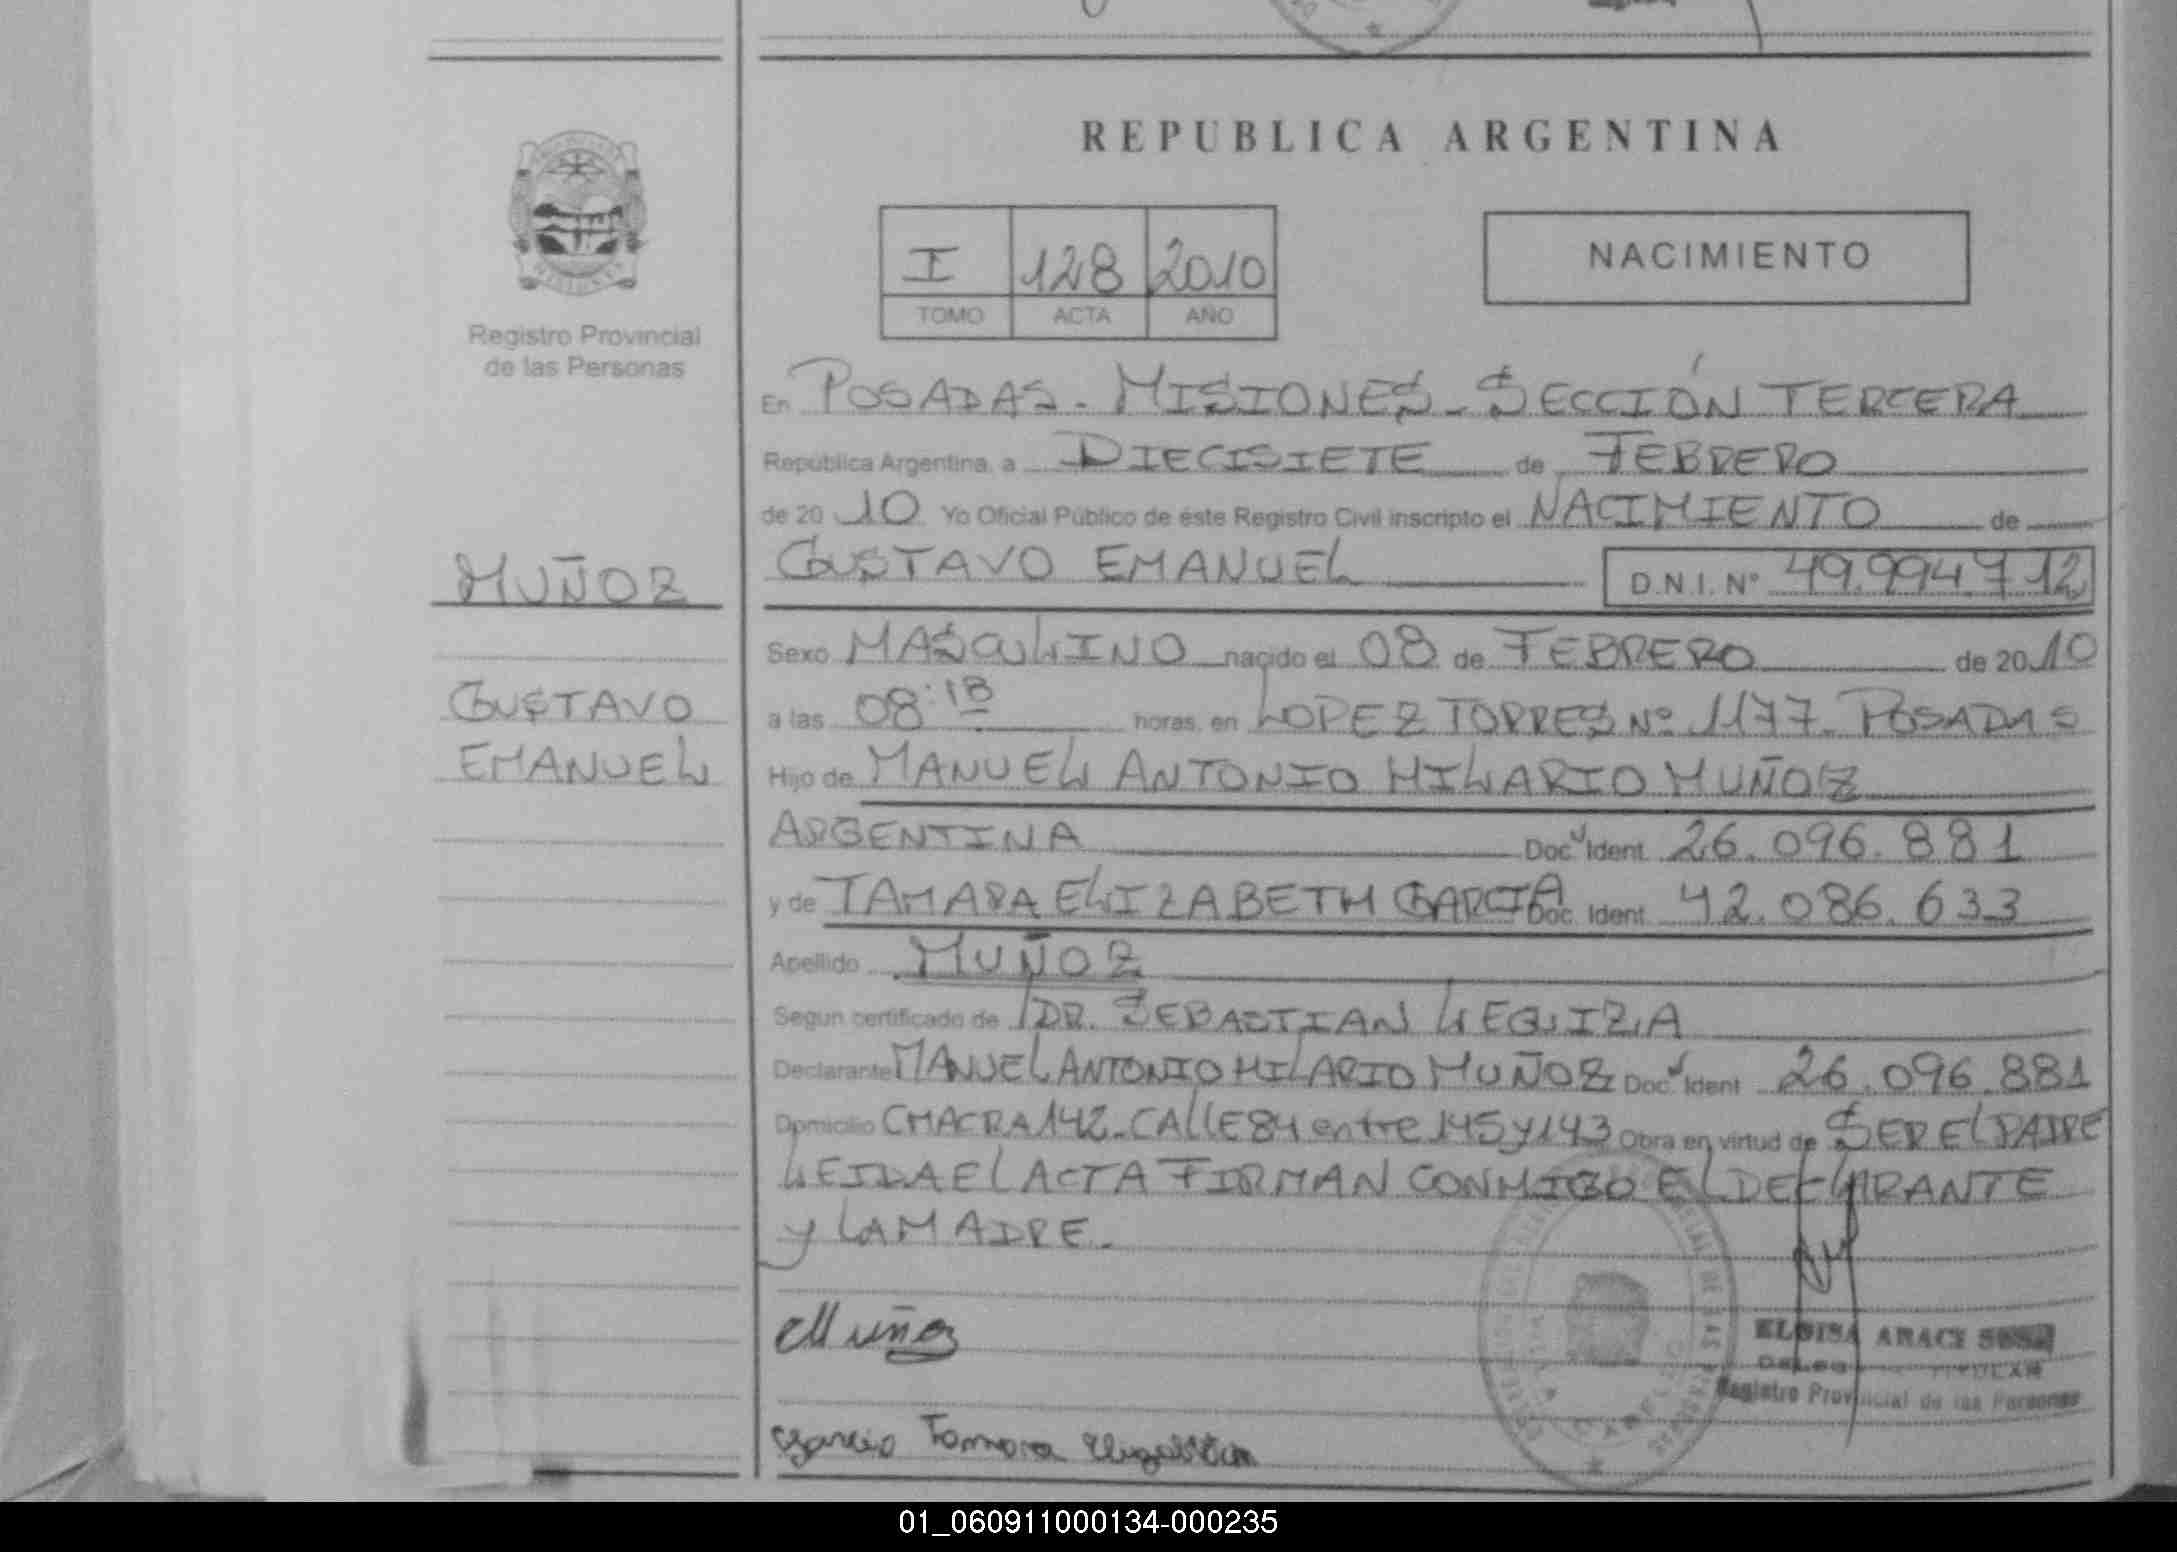 REPUBLICA ARGENTINA
I 128 2010
TOMO ACTA AÑO
NACIMIENTO
Registro Provincial
de las Personas
En POSADAS - MISIONES - SECCIÓN TERCERA
República Argentina, a DIECISIETE de FEBRERO
de 2010 Yo Oficial Público de éste Registro Civil inscripto el NACIMIENTO de
MUÑOZ
GUSTAVO EMANUEL D.N.I. Nº 49.994.712
Sexo MASCULINO nacido el 08 de FEBRERO de 2010
GUSTAVO
a las 08:18 horas, en LOPEZ TORRES Nº 1177 - POSADAS
EMANUEL
Hijo de MANUEL ANTONIO HILARIO MUÑOZ
ARGENTINA Doc. Ident. 26.096.881
y de TAMARA ELIZABETH GARCIA Doc. Ident. 42.086.633
Apellido MUÑOZ
Segun certificado de DR. SEBASTIAN LEGUIZA
Declarante MANUEL ANTONIO HILARIO MUÑOZ Doc. Ident. 26.096.881
Domicilio CHACRA 142 - CALLE 84 entre 145 y 143 Obra en virtud de SER EL PADRE
LEIDA EL ACTA FIRMAN CONMIGO EL DECLARANTE
y LA MADRE.
Muñoz
ELOISA ARACI
TITULAR
Registro Provincial de las Personas
Garcia Tamara Elizabeth
01_060911000134-000235